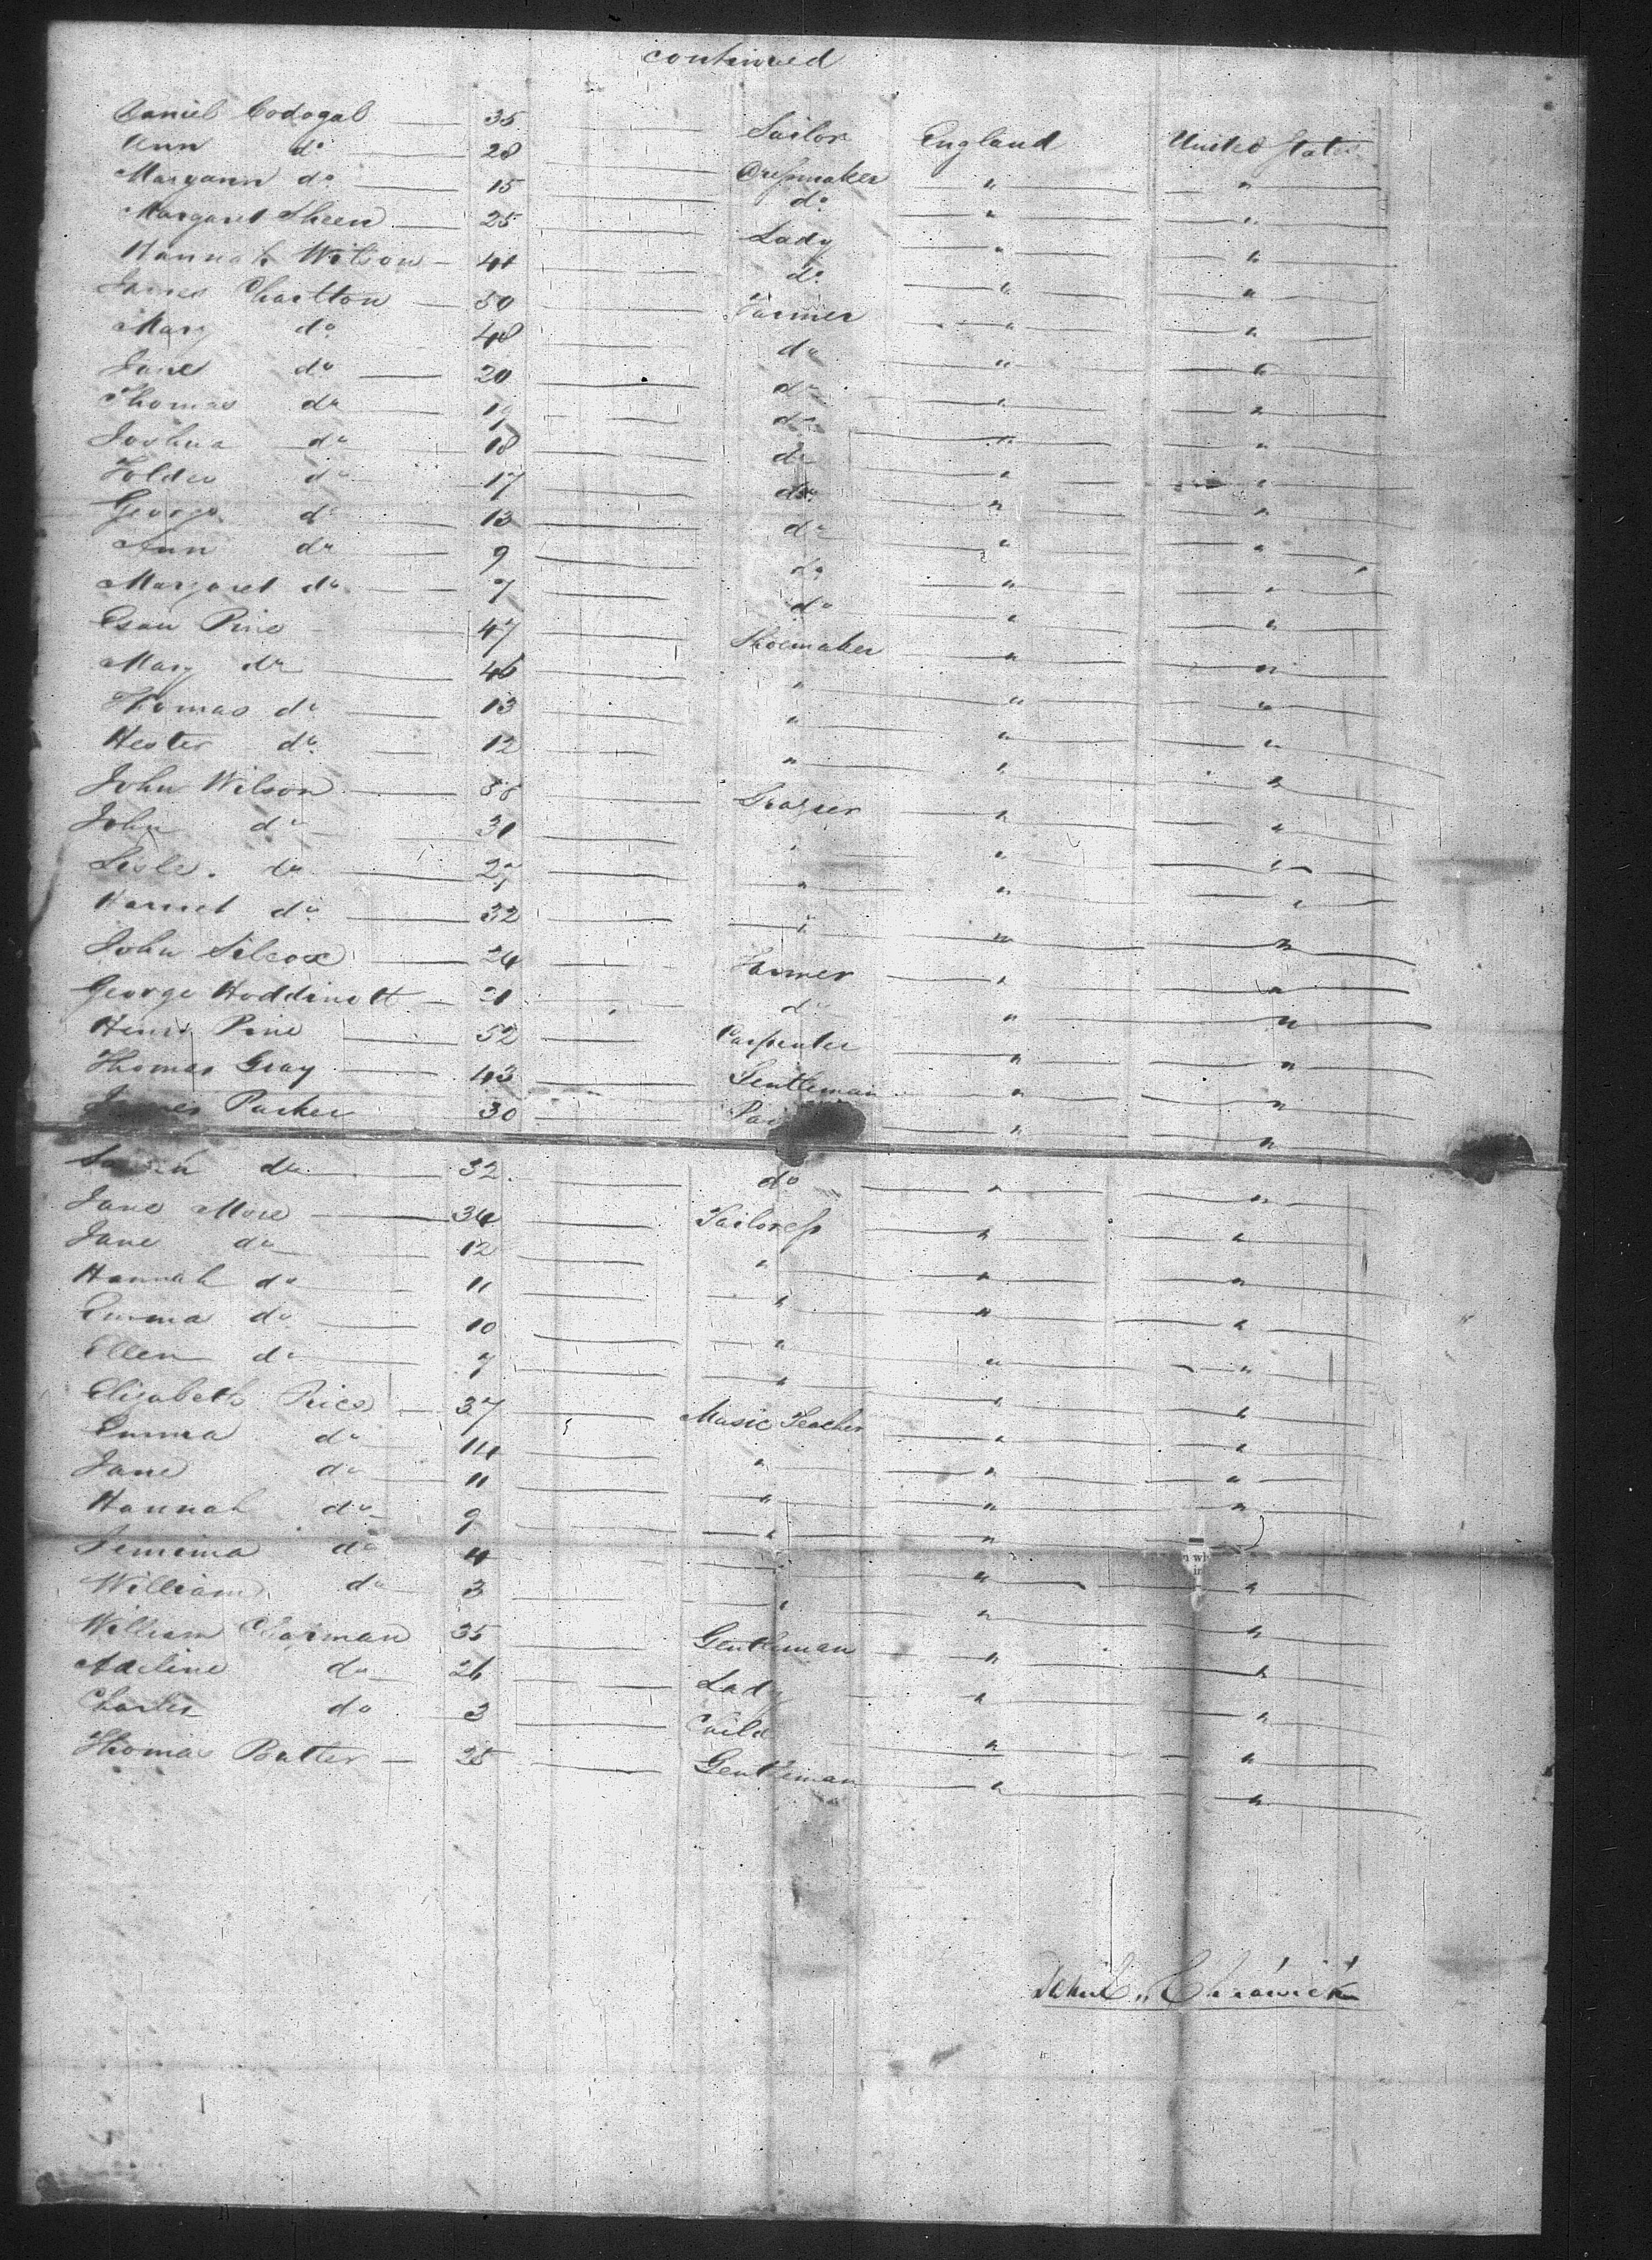 continued
Daniel Codogal 35 Tailor England United States
Ann do 28 Dressmaker " "
Maryann do 15 do " "
Margaret Sheen 25 Lady " "
Hannah Wilson 41 do " "
James Charlton 50 Farmer " "
Mary do 48 do " "
Jane do 20 do " "
Thomas do 19 do " "
Joshua do 18 do " "
do 17 do " "
George do 13 do " "
Ann do 9 do " "
Margaret do 7 do " "
Esau Pine 47 Shoemaker " "
Mary do 46 " " "
Thomas do 13 " " "
Hester do 12 " " "
John Wilson Grazier " "
John do 31 " " "
do 27 " " "
Harriet do 32 " " "
John Silcox 24 Farmer " "
George Hoddinott 21 do " "
Henry Pine 52 Carpenter " "
Thomas Gray 43 Gentleman " "
James Parker 30 " "
Sarah do 32 do " "
Jane More 34 Tailoress " "
Jane do 12 " " "
Hannah do 11 " " "
Emma do 10 " " "
Ellen do 7 " " "
Elizabeth Price 37 Music Teacher " "
Emma do 14 " " "
Jane do 11 " " "
Hannah do 9 " " "
Jemima do 4 " " "
William do 3 " " "
William Charman 35 Gentleman " "
Adeline do 26 Lady " "
Charles do 3 Child " "
Thomas Butler 25 Gentleman " "